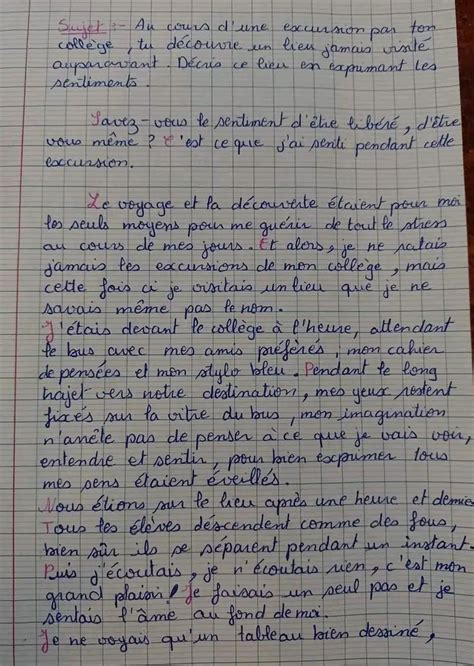 Sujet :- Au cours d'une excursion par ton
collège, tu découvre un lieu jamais visité
auparavant. Décris ce lieu en exprimant tes
sentiments.
Savez-vous le sentiment d'être libéré, d'être
vous même ? C'est ce que j'ai senti pendant cette
excursion.
Le voyage et la découverte étaient pour moi
les seuls moyens pour me guérir de tout le stress
au cours de mes jours. Et alors, je ne ratais
jamais les excursions de mon collège, mais
cette fois ci je visitais un lieu que je ne
savais même pas le nom.
J'étais devant le collège à l'heure, attendant
le bus avec mes amis préférés ; mon cahier
de pensées et mon stylo bleu. Pendant le long
trajet vers notre destination, mes yeux restent
fixés sur la vitre du bus, mon imagination
n'arrête pas de penser à ce que je vais voir,
entendre et sentir, pour bien exprimer tous
mes sens étaient éveillés.
Nous étions sur le lieu après une heure et demie
Tous les élèves descendent comme des fous,
bien sûr ils se séparent pendant un instant.
Puis j'écoutais, je n'écoutais rien, c'est mon
grand plaisir ! Je faisais un seul pas et je
sentais l'âme au fond de moi.
Je ne voyais qu'un tableau bien dessiné,